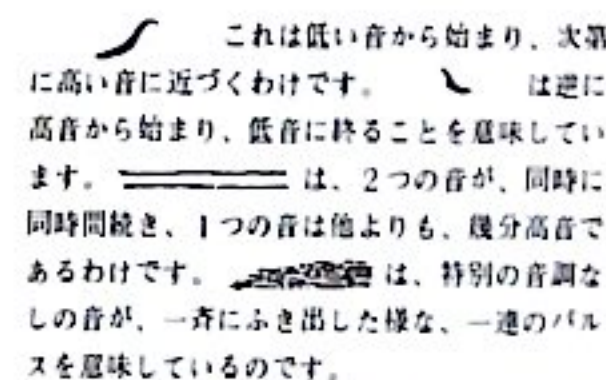 これは低い音から始まり、次第
に高い音に近づくわけです。 は逆に
高音から始まり、低音に終ることを意味してい
ます。 は、2つの音が、同時に
同時間続き、1つの音は他よりも、幾分高音で
あるわけです。 は、特別の音調な
しの音が、一斉にふき出した様な、一連のパル
スを意味しているのです。